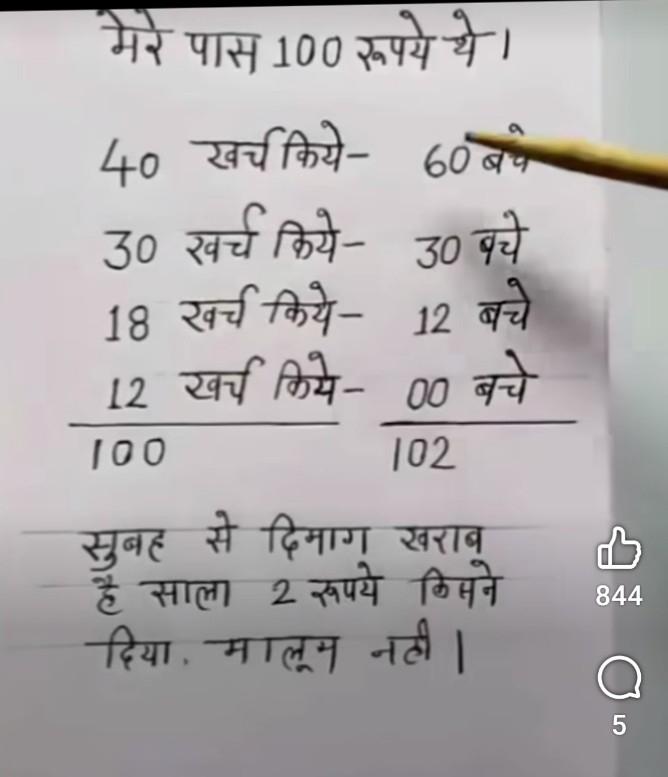 मेरे पास 100 रूपये थे।
40 खर्च किये- 60 बचे
30 खर्च किये- 30 बचे
18 खर्च किये- 12 बचे
12 खर्च किये- 00 बचे
100 102
सुबह से दिमाग खराब
है साला 2 रूपये किसने
दिया. मालूम नही।
844
5